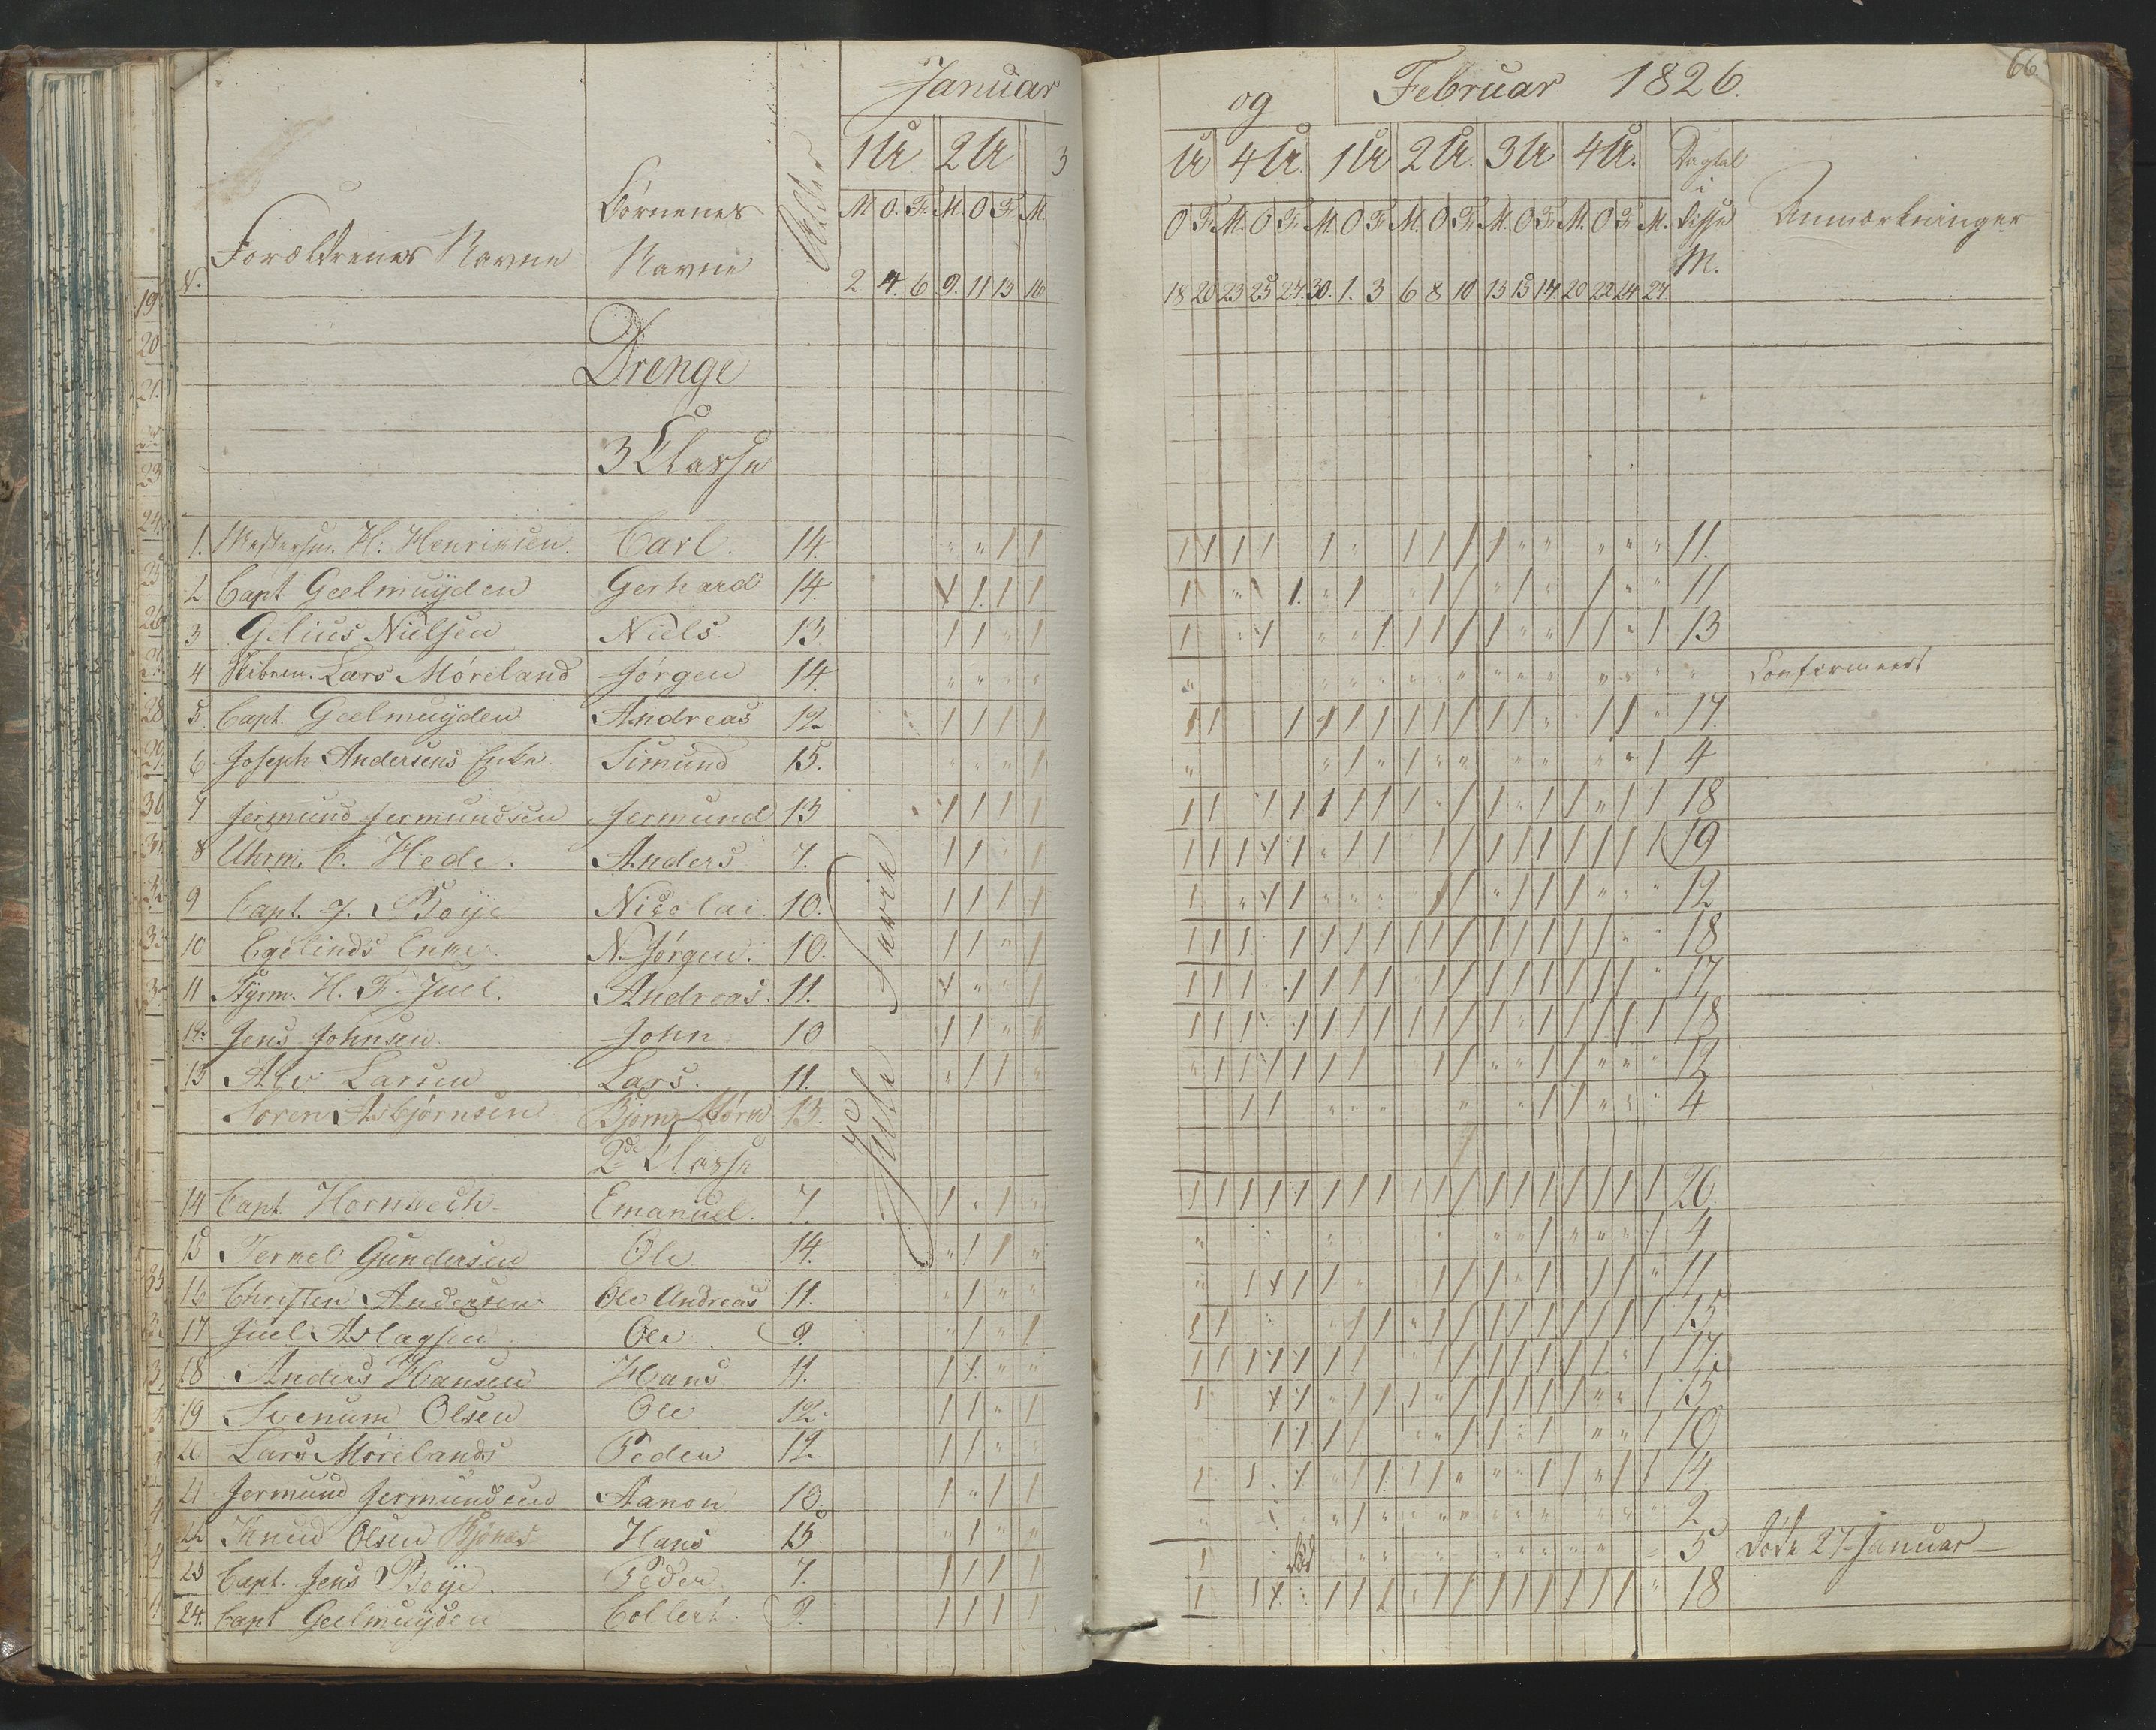 Januar og Februar 1826. 66.
1 U 2 U 3 U 4 U. 1 U 2 U. 3 U 4 U. Dagtal i disse M. Anmærkninger
N. Forældrenes Navne Børnenes Navne Alder M O. F. M. O F. M. O F. M. O F. M. O F. M. O F. M. O F. M. O F. M.
2 4. 6 9. 11 13 16 18 20 23 25 27. 30. 1. 3 6 8 10 13 15 17 20 22 24 27
Drenge
3 Classe
1. H. Henriksen. Carl. 14. 11.
2 Capt Geelmuÿden Gerhard 14. 11
3 Gelius Nielsen Niels. 13. 13
4 Lars Móreland Jórgen 14. Confirmeert
5. Capt. Geelmuÿden Andreas 12. 17.
6 Joseph Andersens Enke Simund 15. 4
7 Jermund Jermundsen Jermund 13 18
8 Uhrm. C. Hede. Anders 7. 19
9 Capt. J. Boÿe Nicolai. 10. 12
10 Egelinds Enke. N. Jórgen. 10. 18
11 Styrm. H. F. Juel. Andreas. 11. 17
12. Jens Johnsen. John 10 18
13 Alv Larsen Lars. 11. 12
Soren Asbjórnsen Bjorn 13. 4.
Jule Ferie
2de Classe
14 Capt. Hornbech Emanuel. 7. 20
15 Terkel Gundersen Ole 14. 4
16 Christen Andersen Ole Andreas 11. 11
17 Juel Aslagsen Ole 9. 15
18 Anders Hansen Hans 11. 17.
19 Svenum Olsen Ole 12. 15
20 Lars Mórelands Peder 12. 10
21 Jermund Jermundsen Aanon 10. 14
22 Knud Olsen Hans 15. 2
23 Capt. Jens Boÿe. Peder 7. död 5 Döde 27 Januar
24. Capt Geelmuÿden Collert. 9. 18